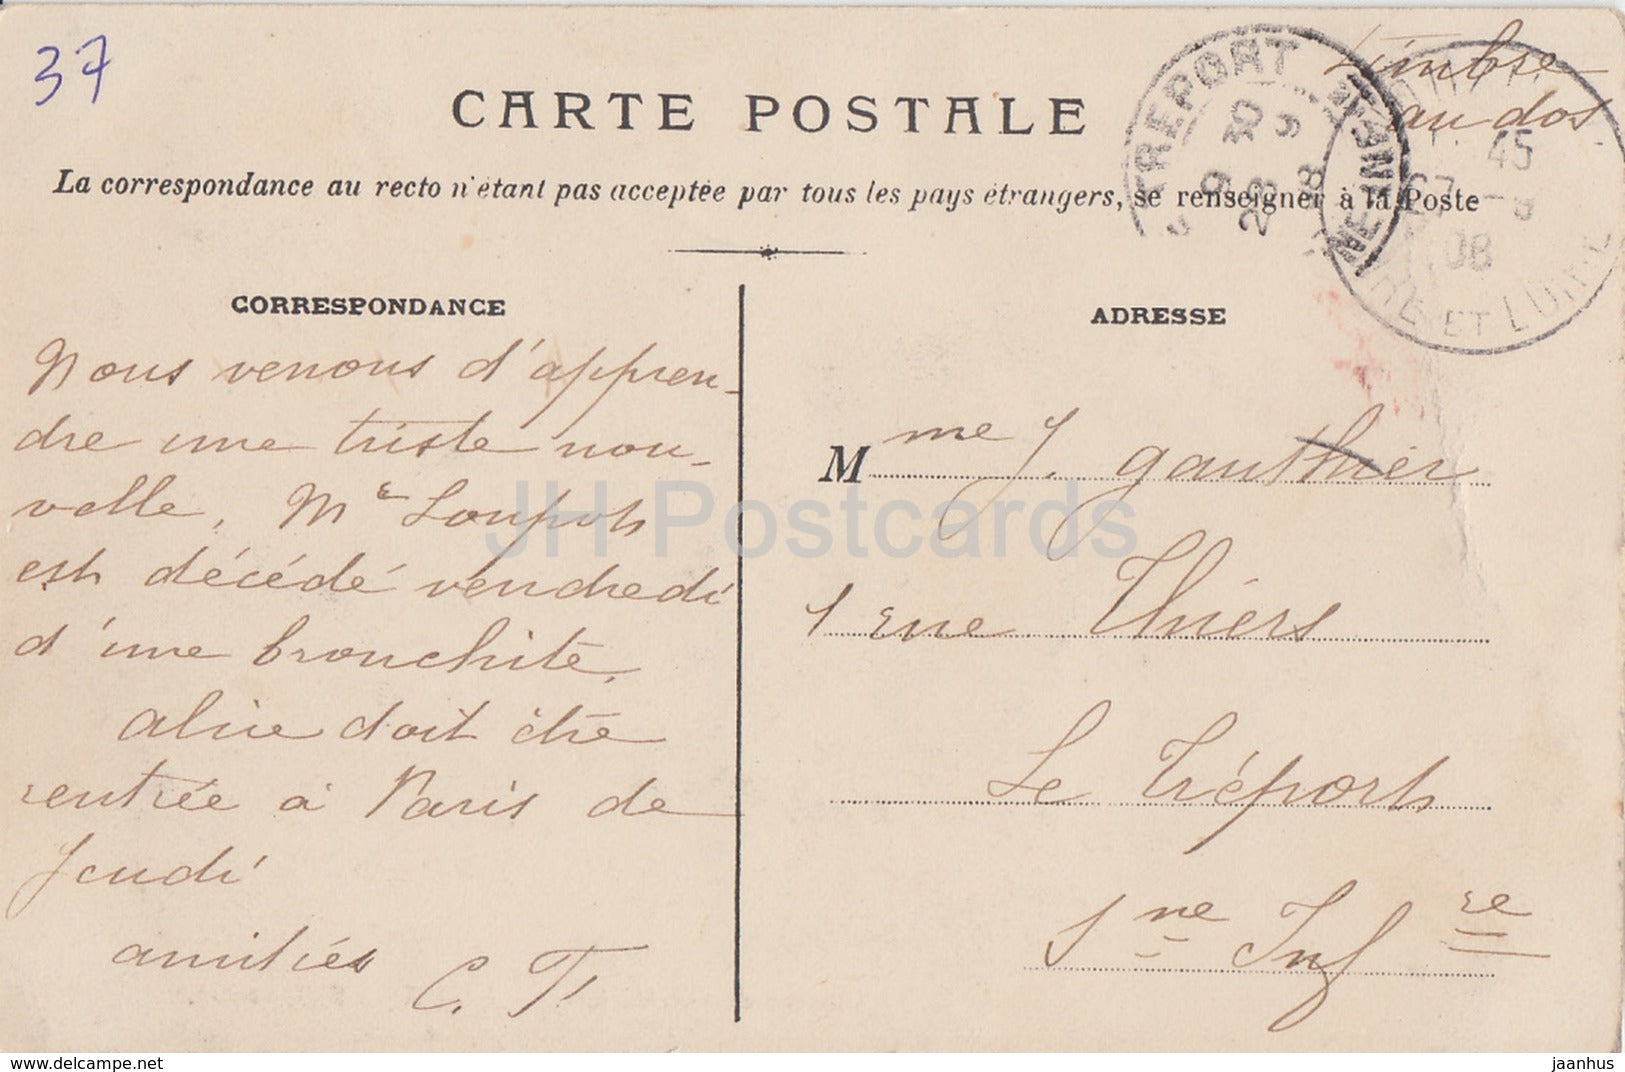 37
Timbre
au dos
CARTE POSTALE
La correspondance au recto n'étant pas acceptée par tous les pays étrangers, se renseigner à la Poste
TREPORT
9 30
23 9
08
45
27 -8
08
ET LOIRE
CORRESPONDANCE
Nous venons d'appren-
dre une triste nou-
velle, Me
est décédé vendredi
d'une bronchite,
Alice doit être
rentrée à Paris de
Jeudi
amitiés C. T.
ADRESSE
Mme J. Gauthier
1 rue Thiers
Le Tréport
Sne Infre
JH Postcards
jaanhus